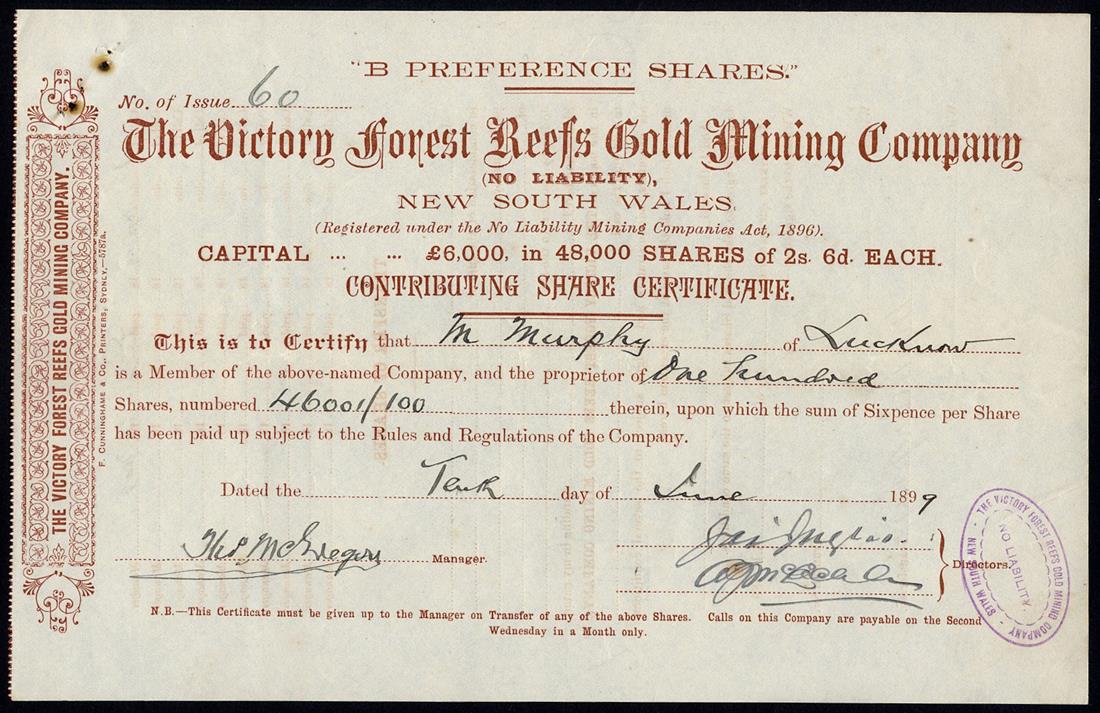 "B PREFERENCE SHARES."
No. of Issue 60
The Victory Forest Reefs Gold Mining Company
(NO LIABILITY),
NEW SOUTH WALES.
(Registered under the No Liability Mining Companies Act, 1896).
CAPITAL ... ... £6,000, in 48,000 SHARES of 2s. 6d. EACH.
CONTRIBUTING SHARE CERTIFICATE.
This is to Certify that M Murphy of Lucknow
is a Member of the above-named Company, and the proprietor of One hundred
Shares, numbered 46001/100 therein, upon which the sum of Sixpence per Share
has been paid up subject to the Rules and Regulations of the Company.
Dated the Tenth day of June 1899
Thos McGregor Manager.
Directors.
N.B.—This Certificate must be given up to the Manager on Transfer of any of the above Shares. Calls on this Company are payable on the Second
Wednesday in a Month only.
THE VICTORY FOREST REEFS GOLD MINING COMPANY.
F. CUNNINGHAME & CO., PRINTERS, SYDNEY,—5787a.
THE VICTORY FOREST REEFS GOLD MINING COMPANY - NEW SOUTH WALES -
NO LIABILITY.